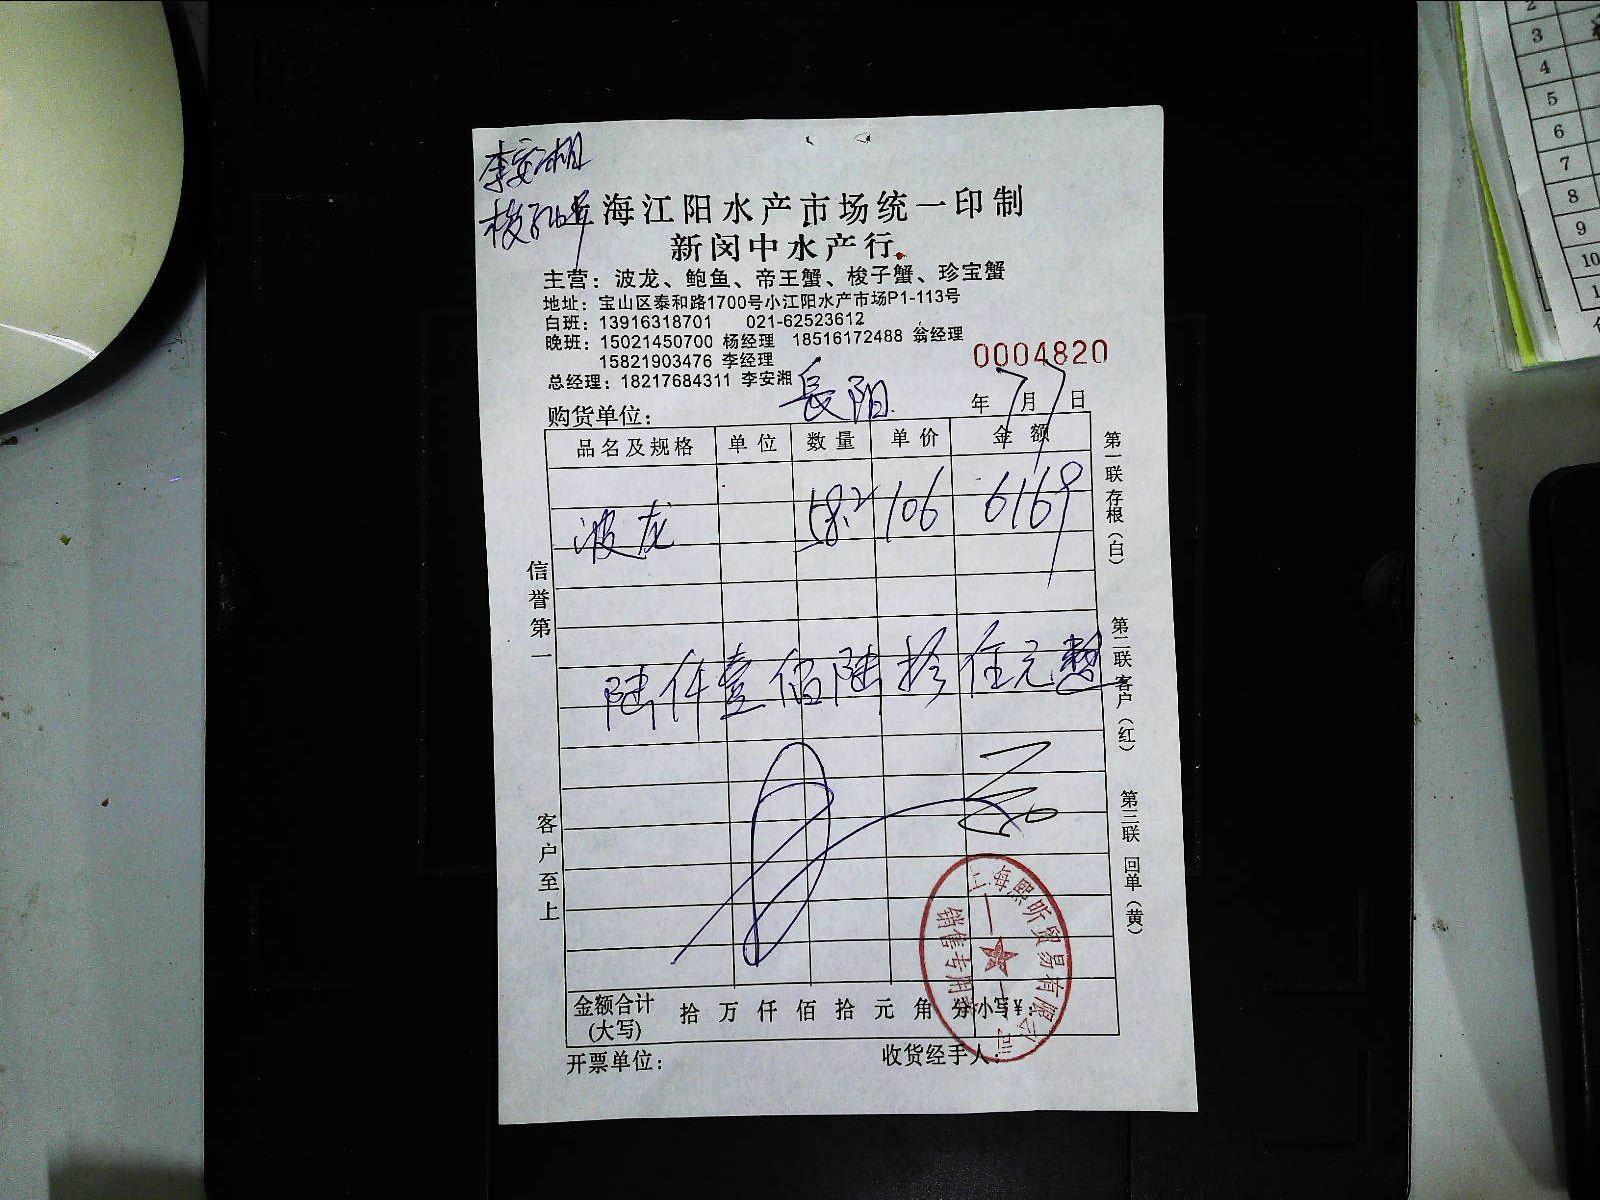 李安湘
海江阳水产市场统一印制
新闵中水产行
主营：波龙、鲍鱼、帝王蟹、梭子蟹、珍宝蟹
地址：宝山区泰和路1700号小江阳水产市场P1-113号
白班：13916318701 021-62523612
晚班：15021450700 杨经理 18516172488 翁经理
15821903476 李经理
0004820
总经理：18217684311 李安湘
购货单位： 長阳 年 7 月 7 日
品名及规格 单位 数量 单价 金额
波龙 58.2 106 6169
陆仟壹佰陆拾 元整
金额合计(大写) 拾 万 仟 佰 拾 元 角 分 小写¥：
开票单位： 收货经手人：
信誉第一
客户至上
第一联 存根（白）
第二联 客户（红）
第三联 回单（黄）
上海熙昕贸易有限公司
销售专用章
2
3
4
5
6
7
8
9
10